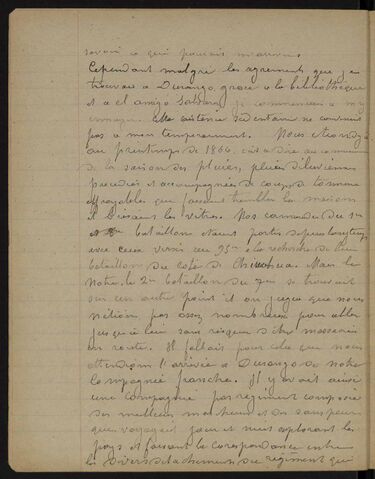 savoir a qui pouvais
Cependant malgré les agrements que j'en
trouvais a Durango, grace a la bibliothèque
et a el amigo je commencais a m'y
ennuyer. Cette existence sedentaire ne convenait
pas a mon temperament. Nous étions
au printemps de 1866. c'est a dire au commen
de la saison des pluies, pluies diluviennes
precedées et accompagnées de coups de tonnerre
effroyables qui faisaient trembler les maisons
et brisaient les vitres. Nos camarades du 1er
bataillon etaient partis depuis longtemps
avec ceux venus du 95e a la recherche de leur
bataillon du coté de Mais le
notre, le 2e bataillon du 7e se trouvait
sur un autre point et on jugea que nous
n'étions pas assez nombreux pour aller
jusqu'a lui sans risquer d'etre massacrés
en route. Il fallait pour cela que nous
attendions l'arrivée a Durango de notre
Compagnie franche. Il y avait ainsi
une compagnie par regiment composée
des meilleurs marcheurs et des sans peur
qui voyageait jour et nuit explorant les
pays et faisant la corespondance entre
les divers detachements du régiment qui